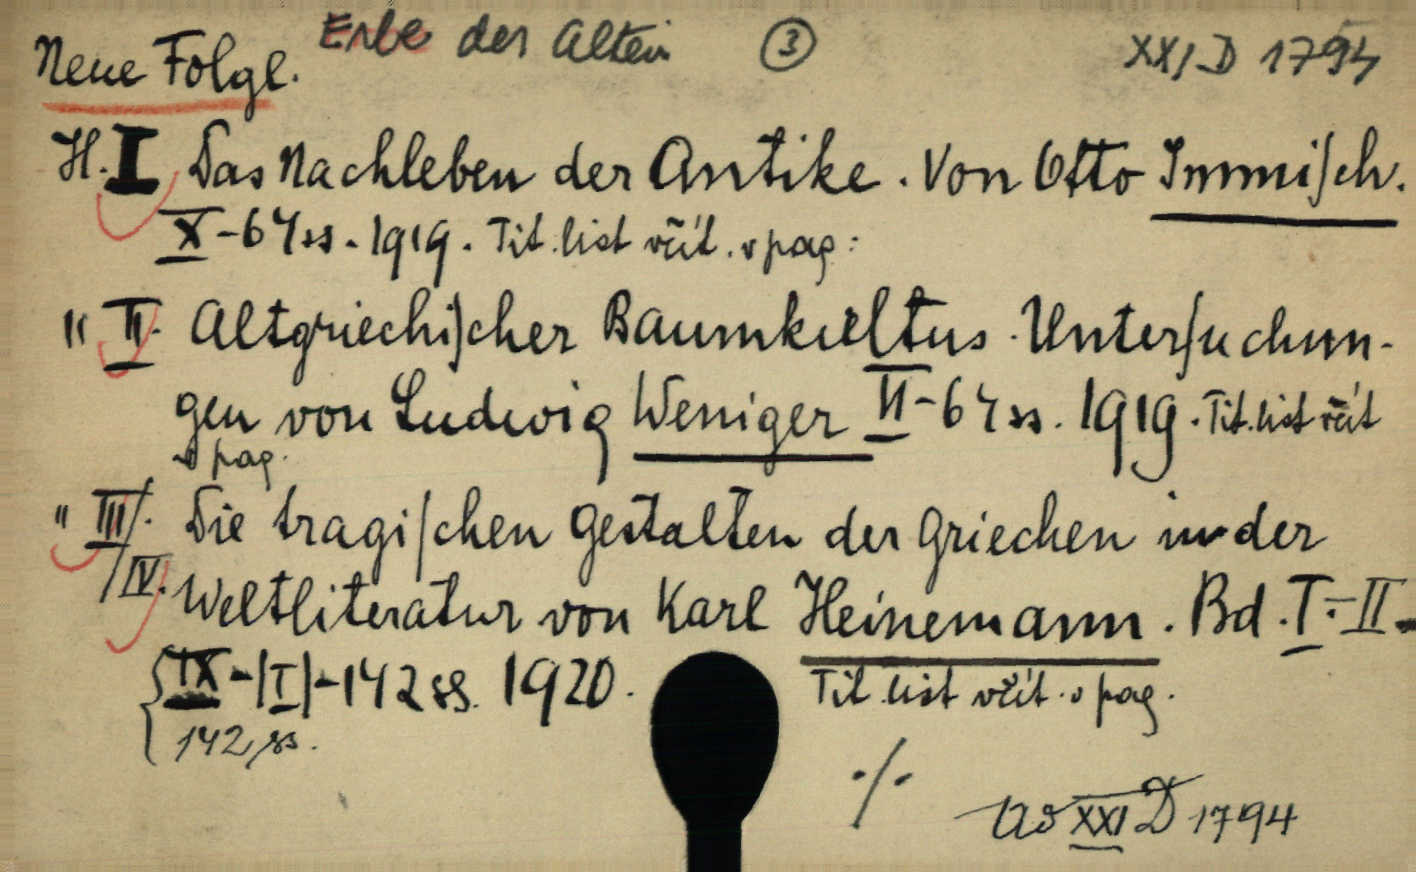 Erbe der Alten ③ XXI D 1794
Neue Folge.
H. I Das Nachleben der Antike. Von Otto Immisch.
X-64 ss. 1919. Tit. list včít. v pag:
" II. Altgriechischer Baumkultus. Untersuchun-
gen von Ludwig Weniger II-64 ss. 1919. Tit. list včít
v pag.
" III/. Die tragischen Gestalten der Griechen in der
/IV. Weltliteratur von Karl Heinemann. Bd. I.-II.
{IX-|I|-142 ss. 1920. Tit. list včít. v pag.
142 ss.
./.
XXI D 1794